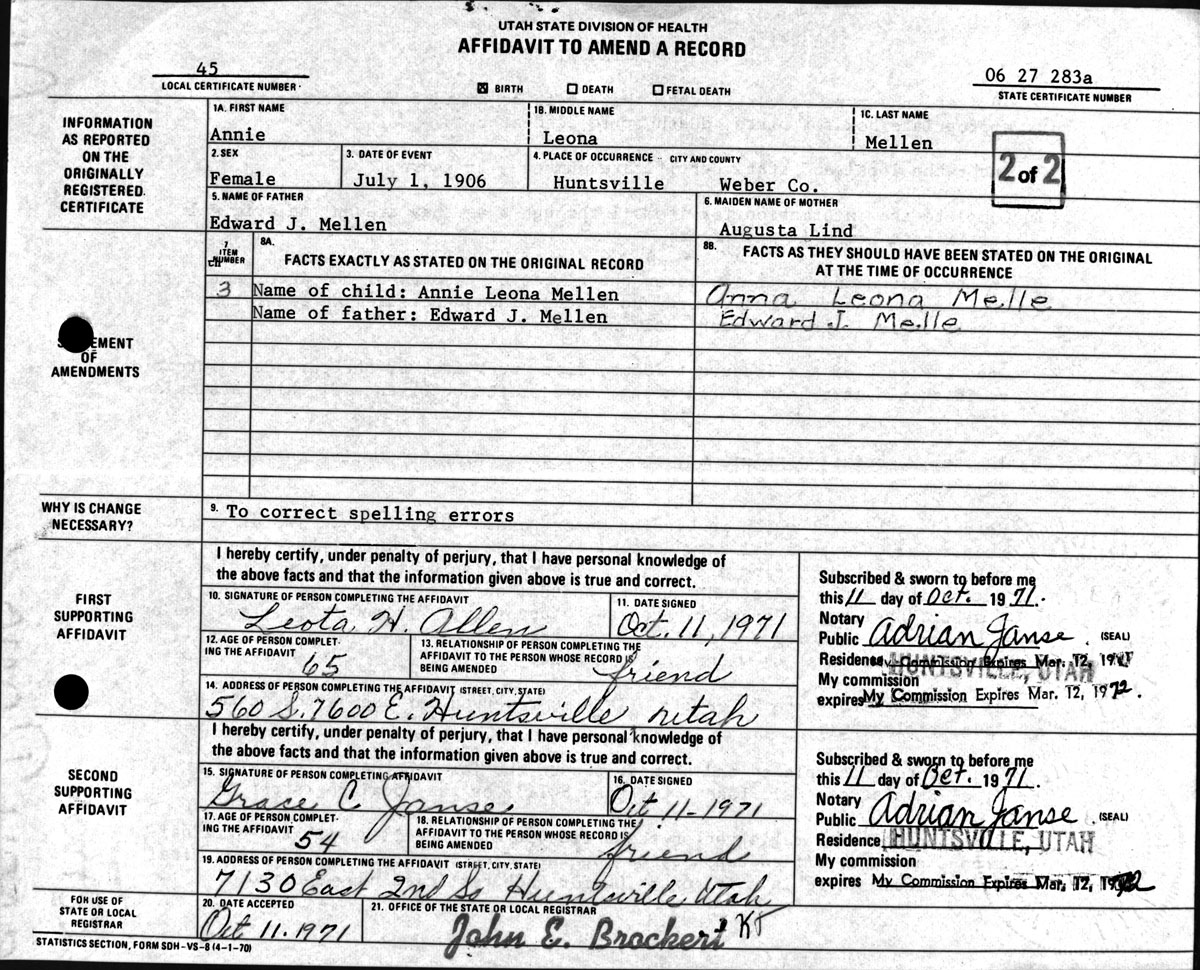 UTAH STATE DIVISION OF HEALTH
AFFIDAVIT TO AMEND A RECORD
45
LOCAL CERTIFICATE NUMBER
☒ BIRTH ☐ DEATH ☐ FETAL DEATH
06 27 283a
STATE CERTIFICATE NUMBER
INFORMATION AS REPORTED ON THE ORIGINALLY REGISTERED CERTIFICATE
1A. FIRST NAME
Annie
1B. MIDDLE NAME
Leona
1C. LAST NAME
Mellen
2. SEX
Female
3. DATE OF EVENT
July 1, 1906
4. PLACE OF OCCURRENCE - CITY AND COUNTY
Huntsville Weber Co.
2 of 2
5. NAME OF FATHER
Edward J. Mellen
6. MAIDEN NAME OF MOTHER
Augusta Lind
OF
AMENDMENTS
7 ITEM NUMBER
8A. FACTS EXACTLY AS STATED ON THE ORIGINAL RECORD
8B. FACTS AS THEY SHOULD HAVE BEEN STATED ON THE ORIGINAL
AT THE TIME OF OCCURRENCE
3 Name of child: Annie Leona Mellen
Anna Leona Melle
Name of father: Edward J. Mellen
Edward J. Melle
WHY IS CHANGE
NECESSARY?
9. To correct spelling errors
FIRST
SUPPORTING
AFFIDAVIT
I hereby certify, under penalty of perjury, that I have personal knowledge of
the above facts and that the information given above is true and correct.
10. SIGNATURE OF PERSON COMPLETING THE AFFIDAVIT
Leota H. Allen
11. DATE SIGNED
Oct. 11, 1971
12. AGE OF PERSON COMPLET-
ING THE AFFIDAVIT
65
13. RELATIONSHIP OF PERSON COMPLETING THE
AFFIDAVIT TO THE PERSON WHOSE RECORD IS
BEING AMENDED
friend
14. ADDRESS OF PERSON COMPLETING THE AFFIDAVIT (STREET, CITY, STATE)
560 S. 7600 E. Huntsville Utah
Subscribed & sworn to before me
this 11 day of Oct. 1971.
Notary
Public Adrian Janse (SEAL)
Residence HUNTSVILLE, UTAH
My Commission Expires Mar. 12,
My commission
expires My Commission Expires Mar. 12, 1972.
SECOND
SUPPORTING
AFFIDAVIT
I hereby certify, under penalty of perjury, that I have personal knowledge of
the above facts and that the information given above is true and correct.
15. SIGNATURE OF PERSON COMPLETING AFFIDAVIT
Grace C Janse
16. DATE SIGNED
Oct 11-1971
17. AGE OF PERSON COMPLET-
ING THE AFFIDAVIT
54
18. RELATIONSHIP OF PERSON COMPLETING THE
AFFIDAVIT TO THE PERSON WHOSE RECORD IS
BEING AMENDED
friend
19. ADDRESS OF PERSON COMPLETING THE AFFIDAVIT (STREET, CITY, STATE)
7130 East 2nd So Huntsville Utah
Subscribed & sworn to before me
this 11 day of Oct. 1971.
Notary
Public Adrian Janse (SEAL)
Residence HUNTSVILLE, UTAH
My commission
expires My Commission Expires Mar. 12, 1972
FOR USE OF
STATE OR LOCAL
REGISTRAR
20. DATE ACCEPTED
Oct 11. 1971
21. OFFICE OF THE STATE OR LOCAL REGISTRAR
John E. Brockert
STATISTICS SECTION, FORM SDH-VS-8 (4-1-70)